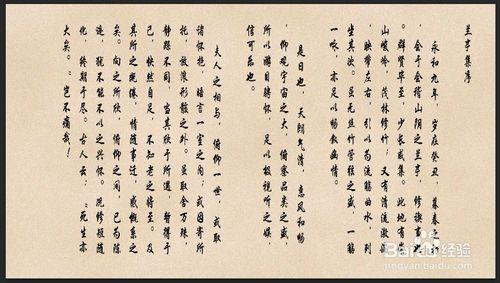 兰亭集序
永和九年，岁在癸丑，暮春之初，
会于会稽山阴之兰亭，修禊事也。
群贤毕至，少长咸集。此地有崇
山峻岭，茂林修竹；又有清流激湍，
映带左右，引以为流觞曲水，列
坐其次。虽无丝竹管弦之盛，一觞
一咏，亦足以畅叙幽情。
是日也，天朗气清，惠风和畅
，仰观宇宙之大，俯察品类之盛，
所以游目骋怀，足以极视听之娱，
信可乐也。
夫人之相与，俯仰一世，或取
诸怀抱，晤言一室之内；或因寄所
托，放浪形骸之外。虽取舍万殊，
静躁不同，当其欣于所遇，暂得于
己，快然自足，不知老之将至。及
其所之既倦，情随事迁，感慨系之
矣。向之所欣，俯仰之间，已为陈
迹，犹不能不以之兴怀。况修短随
化，终期于尽。古人云：“死生亦
大矣。”岂不痛哉！
Baidu经验
jingyan.baidu.com